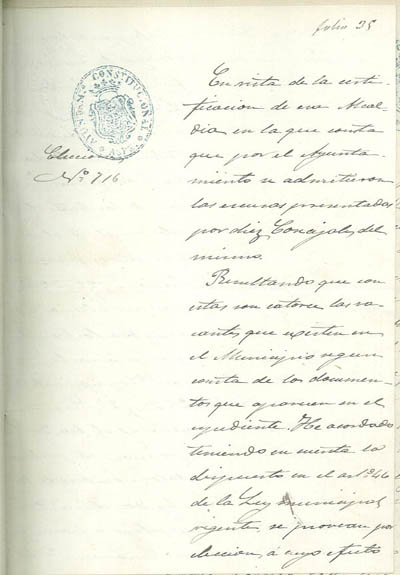 Julio 25
CONSTITUCIONAL
Elecciones
Nº 716
En vista de la certi-
ficacion de esa Alcal-
dia en la que consta
que por el Ayunta-
miento se admitieron
las escusas presentadas
por diez Concejales del
mismo.
Resultando que con
estas son catorce las va-
cantes que existen en
el Municipio segun
consta de los documen-
tos que aparecen en el
espediente. He acordado
teniendo en cuenta lo
dispuesto en el artº 46
de la Ley municipal
vigente, se provean por
eleccion, á cuyo efecto